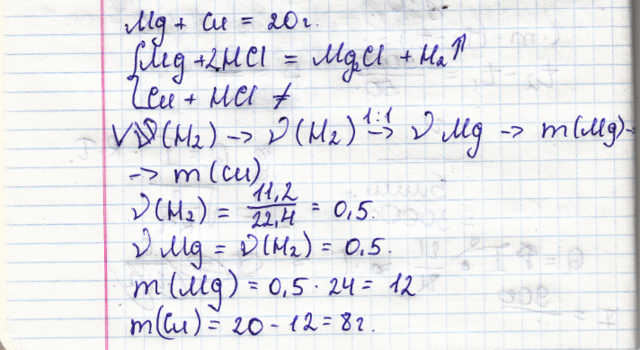 Mg + Cu = 20г.
Mg + 2HCl = Mg2Cl + H2↑
Cu + HCl ≠
V(H2) → ν(H2) 1:1→ ν Mg → m(Mg) -
→ m(Cu)
ν(H2) = 11,2/22,4 = 0,5.
ν Mg = ν(H2) = 0,5.
m(Mg) = 0,5 · 24 = 12
m(Cu) = 20 - 12 = 8г.